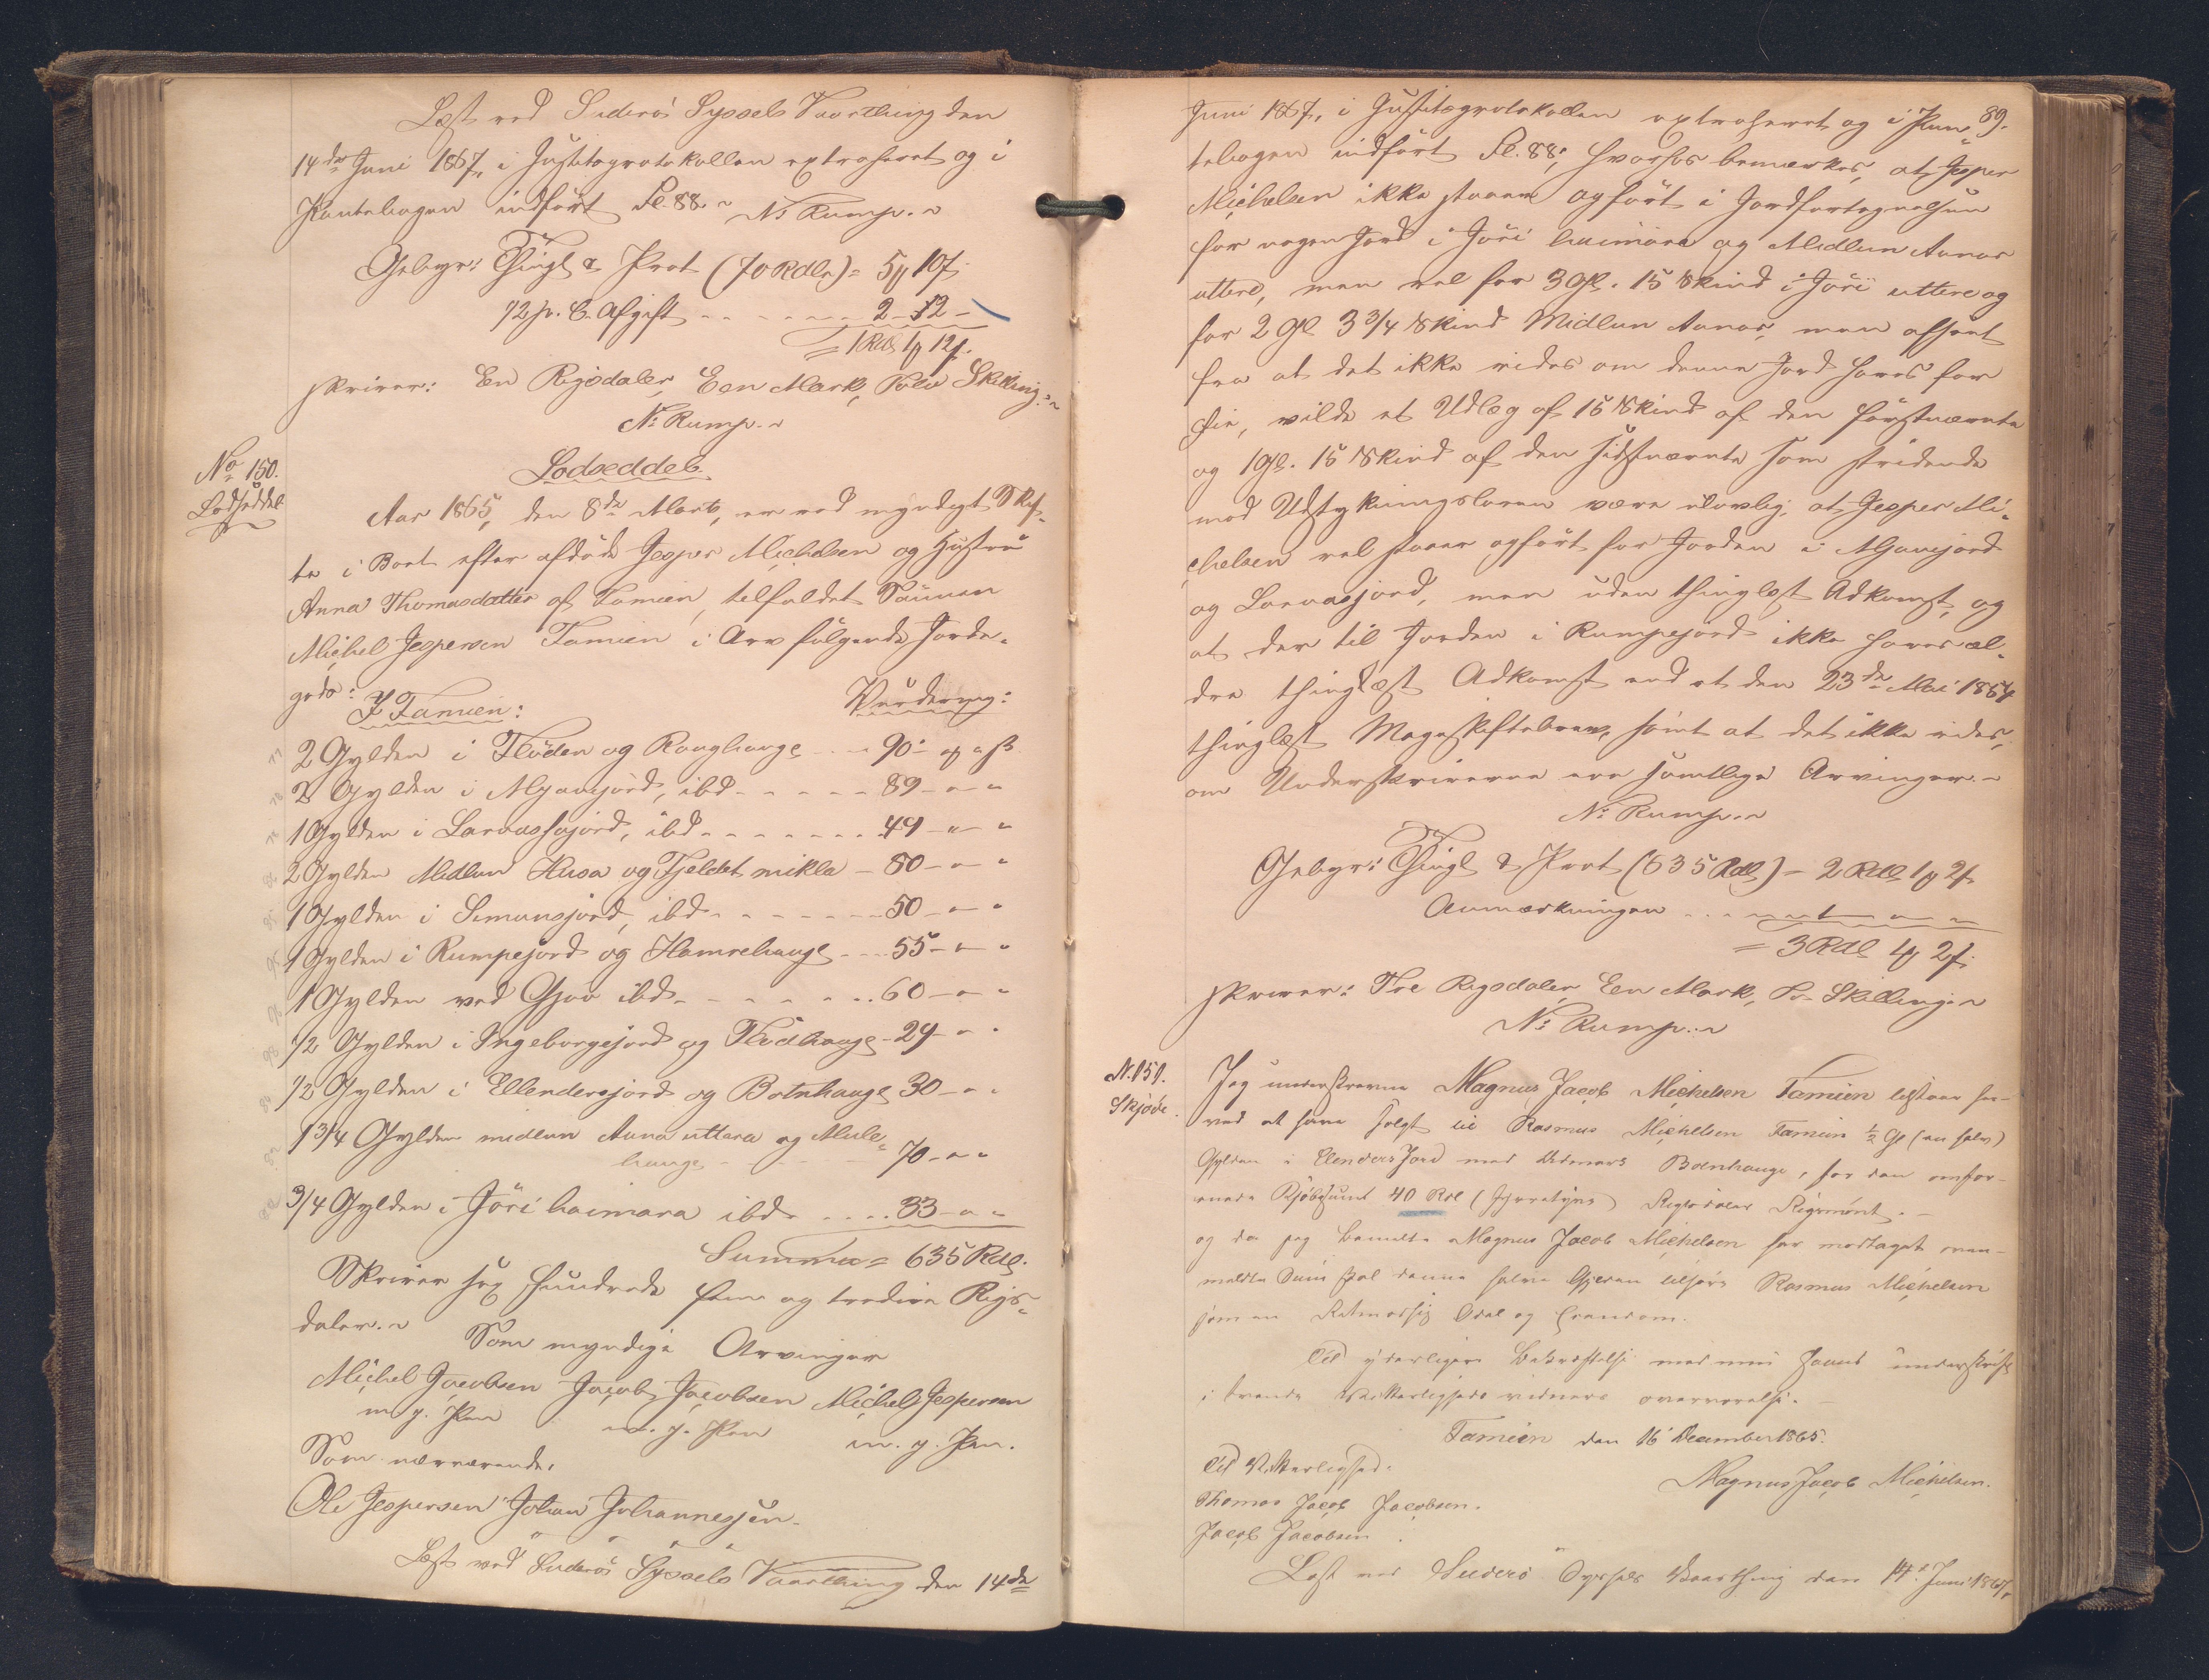 Læst ved Suderö Syssels Vaarthing den
14de Juni 1867, i Justitsprotokollen extraheret og i
Pantebogen indført Fol. 88. N. Rump.
Gebyr: Thingl & Prot (70 Rdlr) = 5 10
1/2 p. C. Afgift 2 - 12 -
= 1 Rdl 1 12
skriver: Een Rigsdaler, Een Mark, Tolv Skilling.
N. Rump.
No 150.
Lodseddel
Lodseddel
Aar 1865, den 8de Marts, er ved myndigt Skif-
te i Boet efter afdöde Jesper Michelsen og Hustru
Anna Thomasdatter af Famien, tilfaldet Sönnen
Michel Jespersen Famien i Arv følgende Jorde-
gods:
I Famien: Vurdering:
2 Gylden i Flöden og Rånghauge 90
2 Gylden i Mjaujord, ibd 89
1 Gylden i Larvasjord, ibd 49
2 Gylden Midlun Husa og Fjeldet mikla 80
1 Gylden i Simunsjord, ibd 50
1 Gylden i Rumpejord og Hamrehauge 55
1 Gylden ved Gjov ibd 60
1/2 Gylden i Ingeborgejord og Flödhauge 29
1/2 Gylden i Ellendersjord og Botnhauge 30
1 3/4 Gylden midlun Auna uttara og Mule-
hauge 70
3/4 Gylden i Jöri haimara ibd 33
Summa = 635 Rdl.
Skriver sex Hundrede fem og tredive Rigs-
daler.
Som myndige Arvinger
Michel Jacobsen Jacob Jacobsen Michel Jespersen
m. p. Pen m. p. Pen m. p. Pen.
Som nærværende,
Ole Jespersen Johan Johannessen
Læst ved Suderö Syssels Vaarthing den 14de
89.
Juni 1867, i Justitsprotokollen extraheret og i Pan-
tebogen indført Fol. 88; hvorhos bemærkes, at Jesper
Michelsen ikke staaer opført i Jordfortegnelsen
for nogen Jord i Jöri haimara og Midlun Aunar
uttere, men vel for 3 Gl. 15 Skind i Jöri uttere og
for 2 Gl 3 3/4 Skind Midlun Aunar, men afseet
fra at det ikke vides om denne Jord haves for
Eie, vilde et Udlæg af 15 Skind af den förstnævnte
og 1 Gl. 15 Skind af den sidstnævnte som stridende
mod Udstykningsloven være ulovlig; at Jesper Mi-
chelsen vel staaer opført for Jorden i Mjaujord
og Larvasjord, men uden thinglæst Adkomst, og
at der til Jorden i Rumpejord ikke haves æl-
dre thinglæst Adkomst end et den 23de Mai 1864
thinglæst Mageskiftebrev, samt at det ikke vides,
om Underskriverne ere samtlige Arvinger.
N. Rump.
Gebyr: Thingl & Prot (635 Rdl) = 2 Rdl 1 2
Anmærkningen 1
= 3 Rdl 1 2
skriver: Tre Rigsdaler, Een Mark, To Skilling.
N. Rump.
N. 151.
Skjöde.
Jeg underskrevne Magnus Jacob Michelsen Famien tilstaar her-
ved at have solgt til Rasmus Michelsen Famien 1/2 Gl (en halv)
Gylden i Elenders Jord med Botnhauge, for den omfor-
enede Kjøbesum 40 Rdl (fyrretyve) Rigsdaler Rigsmönt. -
og da jeg bemeldte Magnus Jacob Michelsen har modtaget oven-
meldte Sum skal denne halve Gylden tilhøre Rasmus Michelsen
som en Retmæssig Odel og Eiendom.
Til yderligere Bekræftelse med min Haand underskrift
i tvende Vitterligheds vidners overværelse. -
Famien den 16 December 1865.
Til Vitterlighed. Magnus Jacob Michelsen.
Thomas Jacob Jacobsen.
Jacob Jacobsen
Læst ved Suderö Syssels Vaarthing den 14de Juni 1867,